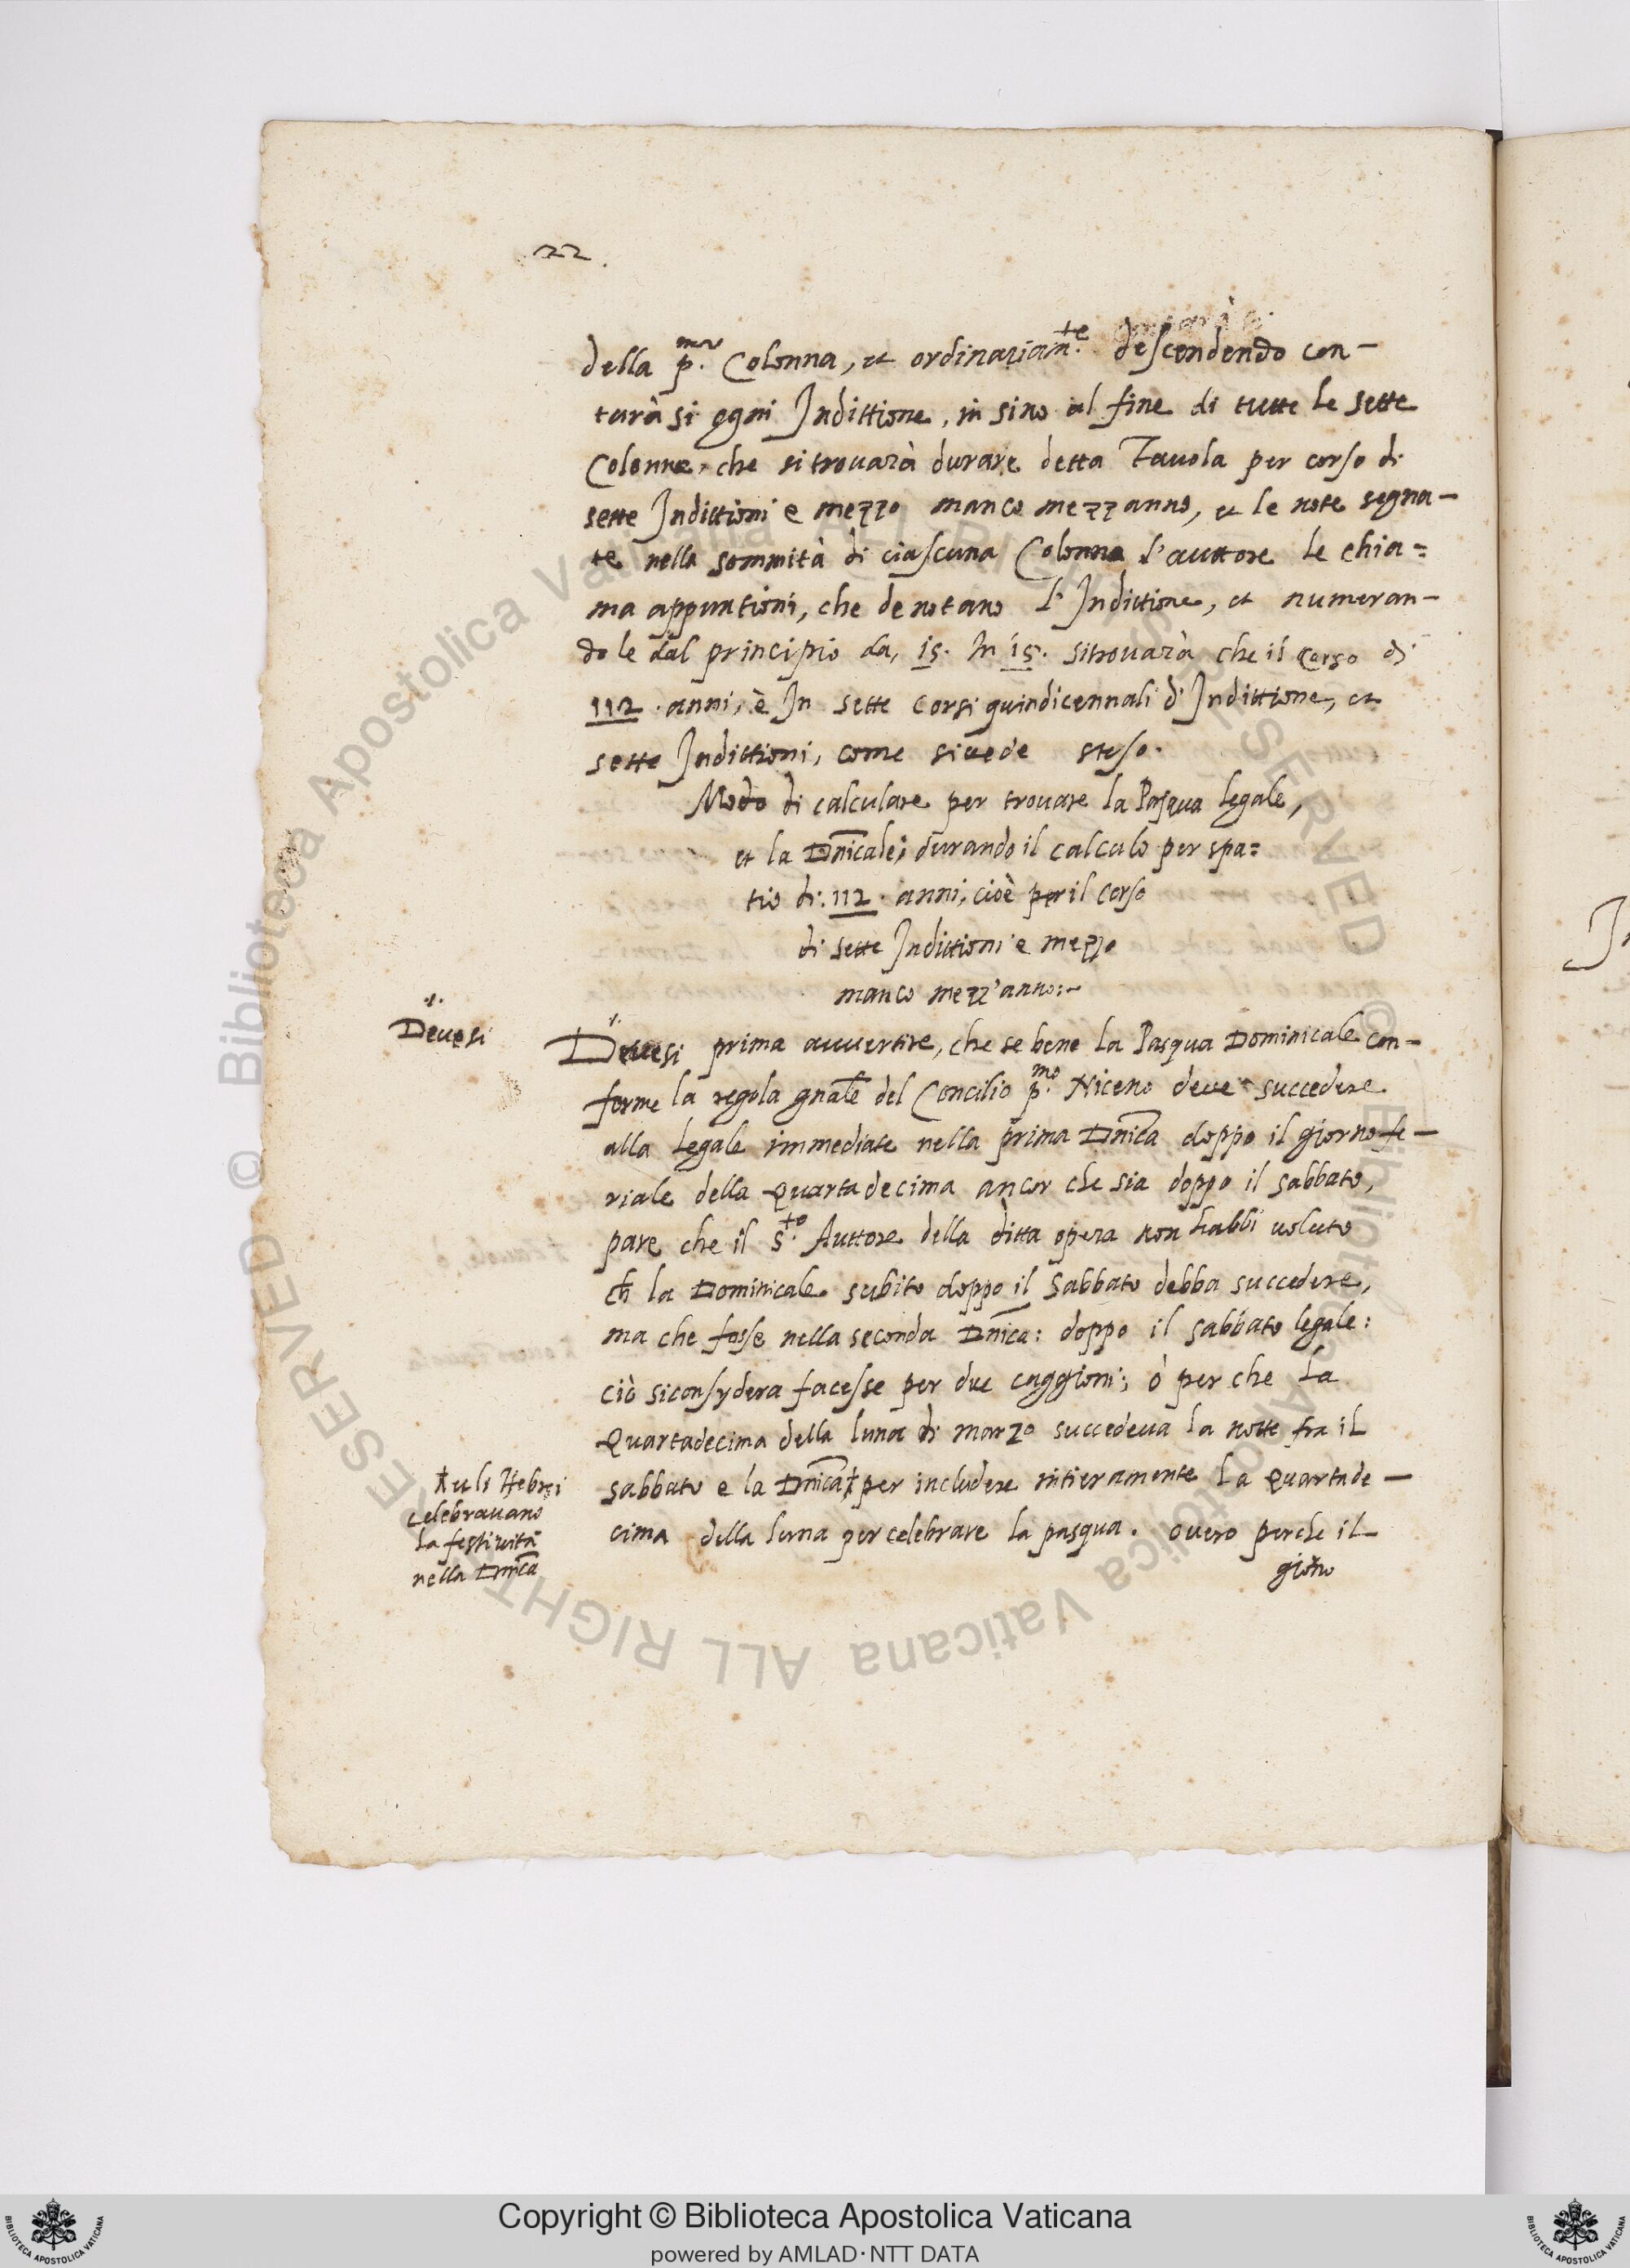 22.
della p.ma Colonna, et ordinariam.te descendendo con-
tarà si ogni Indittione, in sino al fine di tutte le sette
Colonne, che si trovarà durare detta Tavola per corso di
sette Indittioni e mezzo manco mezz anno, et le note segna-
te nella sommità di ciascuna Colonna l'auttore le chia=
ma appuntioni, che denotano l'Indittione, et numeran-
do le dal principio da, 15. In 15. si trovarà che il corso di
112. anni, è In sette corsi quindicennali d'Indittione, et
sette Indittioni, come si vede steso.
Modo di calculare per trovare la Pasqua legale,
et la Dnicale; durando il calculo per spa=
tio di: 112. anni, cioè per il corso
di sette Indittioni e mezzo
manco mezz'anno:-
Devesi
Devesi prima auuertire, che se bene la Pasqua Dominicale con-
forme la regola gnale del Concilio p.mo Niceno deve succedere
alla legale immediate nella prima Dnica doppo il giorno fe-
riale della Quarta decima ancor che sia doppo il sabbato,
pare che il s.to Auttore della ditta opera non habbi voluto
ch la Dominicale subito doppo il Sabbato debba succedere,
ma che fosse nella seconda Dnica: doppo il sabbato legale:
ciò si consydera facesse per due caggioni; ò per che La
Quartadecima della luna di marzo succedeua la notte fra il
sabbato e la Dnica, per includere intieramente La Quartade-
cima della luna per celebrare la pasqua. overo perche il
giorno
li Hebrei
celebravano
la festività
nella Dnica
Copyright © Biblioteca Apostolica Vaticana
powered by AMLAD·NTT DATA
© Biblioteca Apostolica Vaticana ALL RIGHTS RESERVED